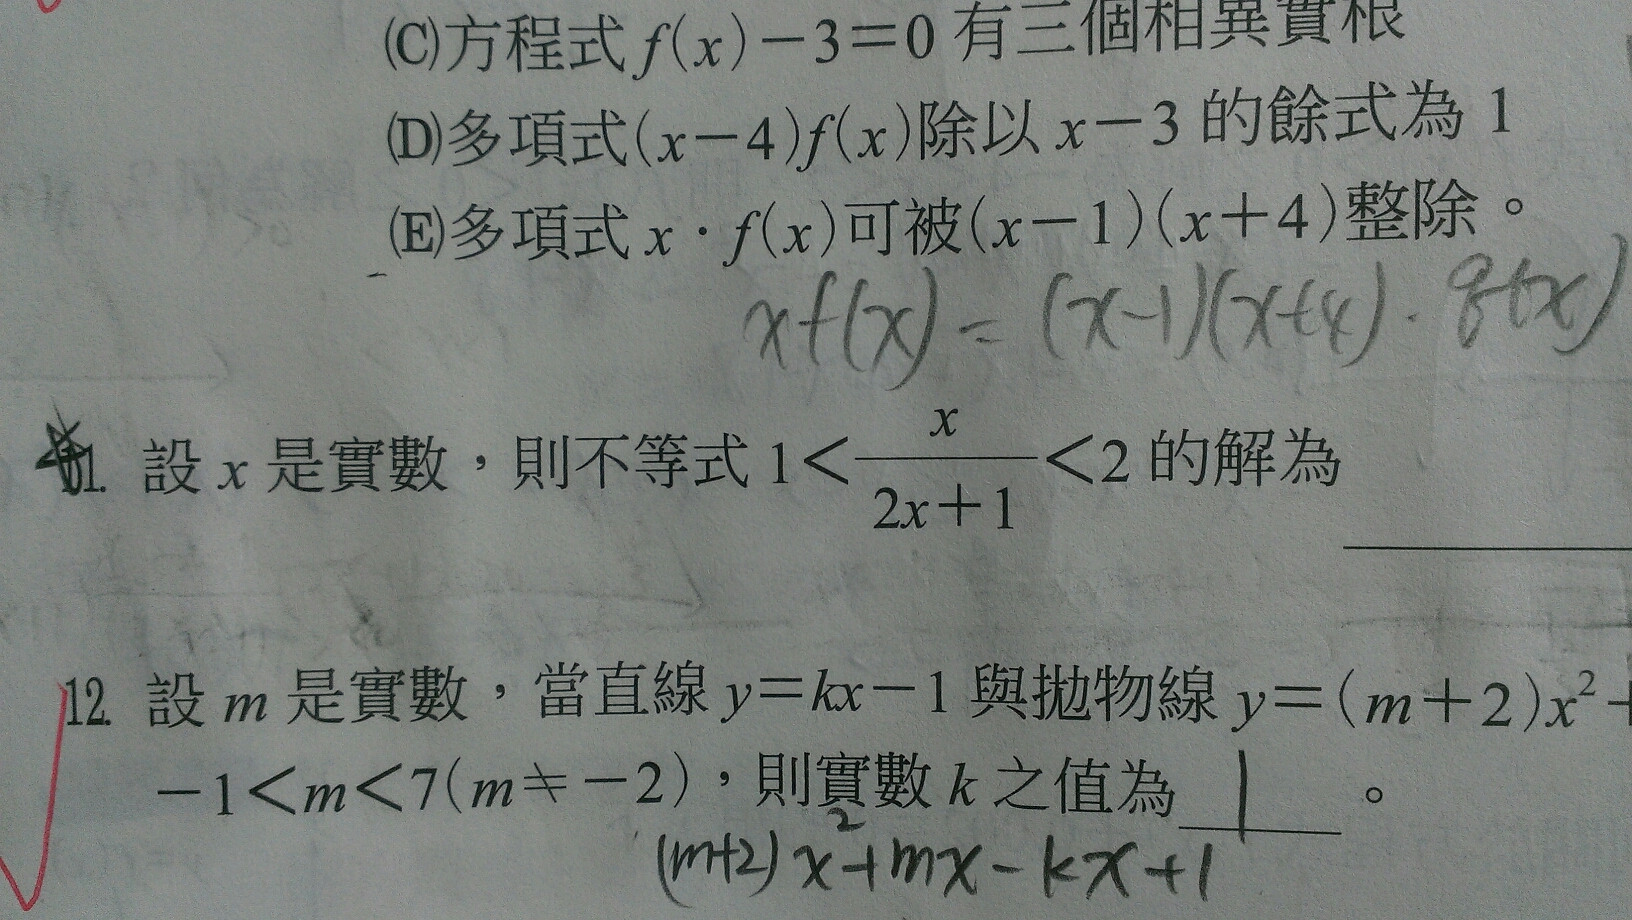 (C)方程式 f(x)－3＝0 有三個相異實根
(D)多項式(x－4)f(x)除以 x－3 的餘式為 1
(E)多項式 x · f(x)可被(x－1)(x＋4)整除。
xf(x) = (x-1)(x+4) · q(x)
11. 設 x 是實數，則不等式 1＜x/(2x＋1)＜2 的解為
12. 設 m 是實數，當直線 y＝kx－1 與拋物線 y＝(m＋2)x²＋
－1＜m＜7(m≠－2)，則實數 k 之值為 1 。
(m+2)x²+mx-kx+1